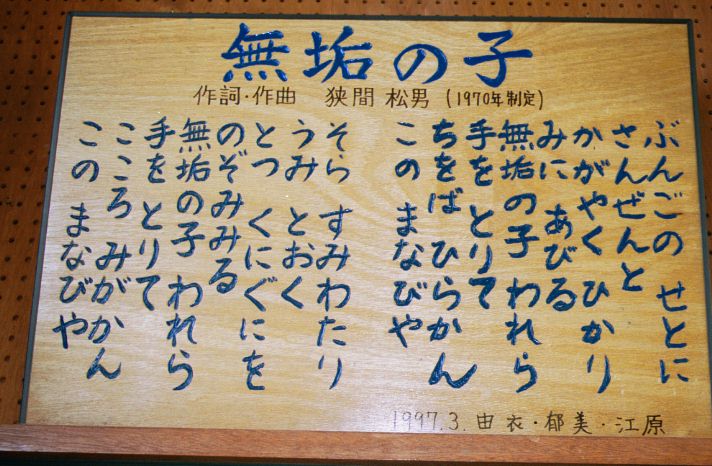 無垢の子
作詞・作曲 狭間 松男 (1970年制定)
ぶんごの せとに
さんぜんと
かがやく ひかり
みに あびる
無垢の子 われら
手を とりて
ちをば ひらかん
この まなびや
そら すみわたり
うみ とおく
とつ くにぐにを
のぞみみる
無垢の子 われら
手を とりて
こころ みがかん
この まなびや
1997.3. 由衣・郁美・江原